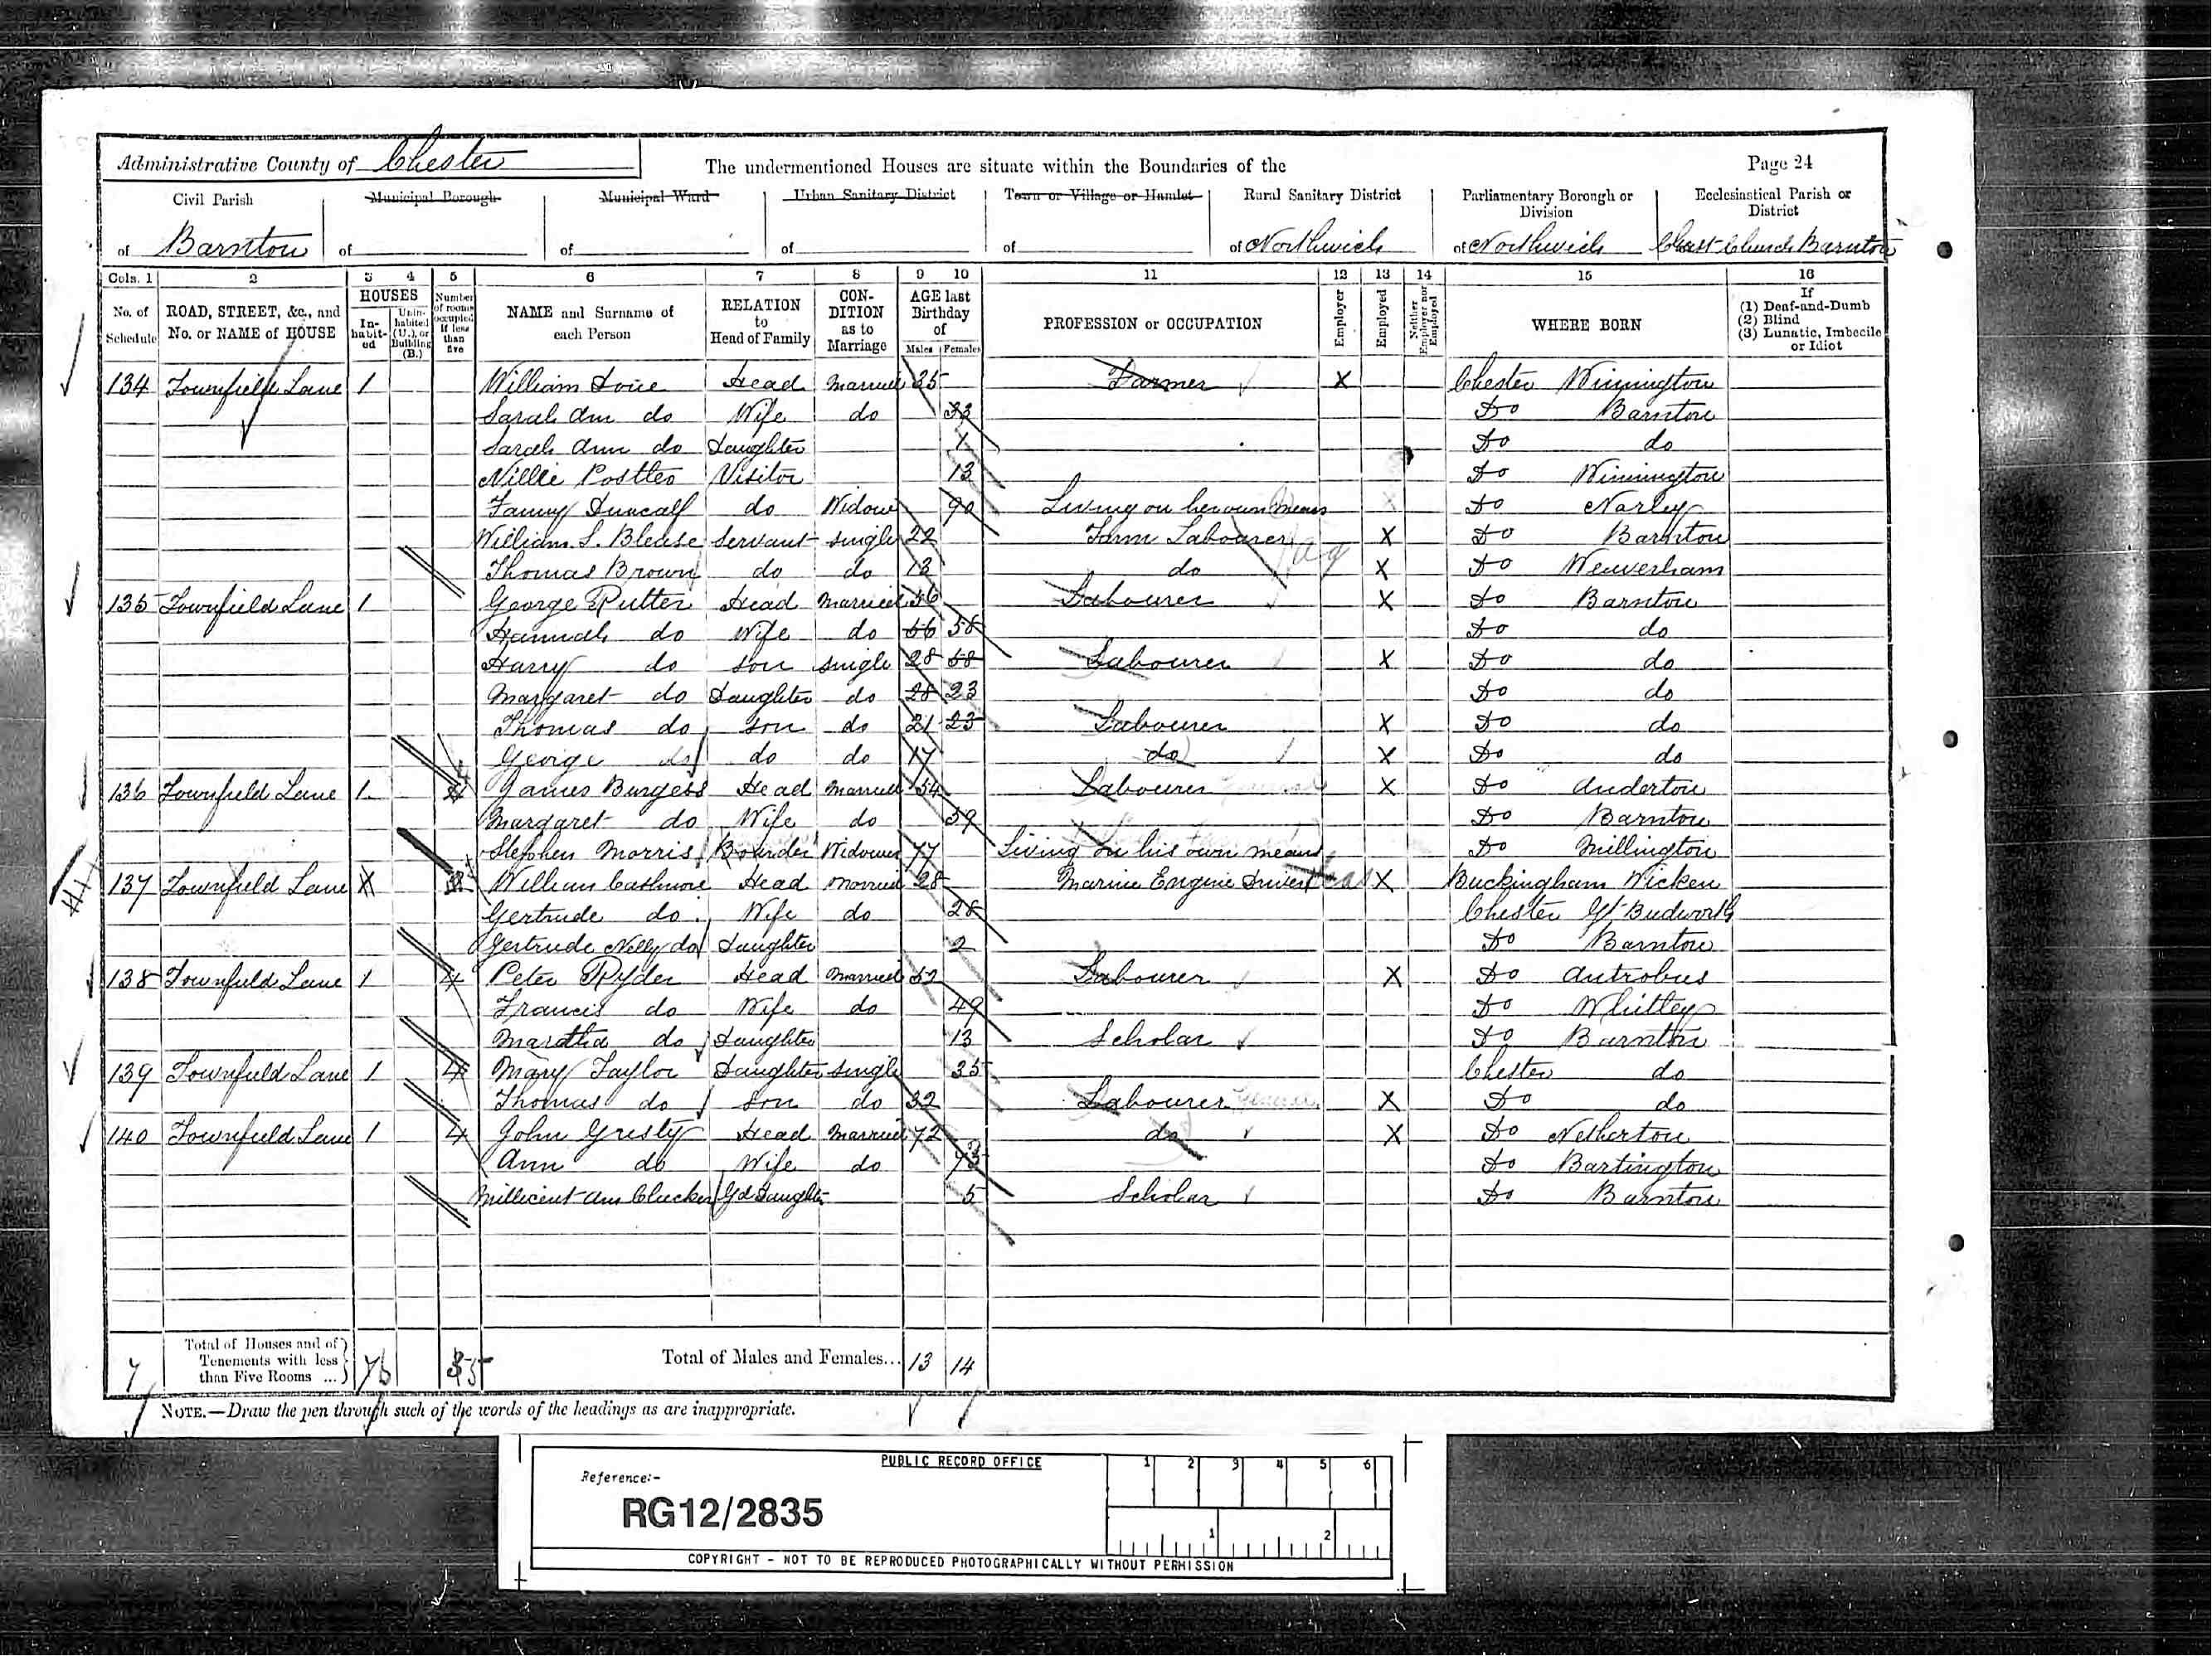 Administrative County of Chester The undermentioned Houses are situate within the Boundaries of the Page 24
Civil Parish Municipal Borough Municipal Ward Urban Sanitary District Town or Village or Hamlet Rural Sanitary District Parliamentary Borough or Division Ecclesiastical Parish or District
of Barnton of of of of of Northwich of Northwich Christ Church Barnton
Cols. 1 2 3 4 5 6 7 8 9 10 11 12 13 14 15 16
No. of Schedule ROAD, STREET, &c., and No. or NAME of HOUSE HOUSES In-habit-ed Unin-habited (U.), or Building (B.) Number of rooms occupied if less than five NAME and Surname of each Person RELATION to Head of Family CON-DITION as to Marriage AGE last Birthday of Males Females PROFESSION or OCCUPATION Employer Employed Neither Employer nor Employed WHERE BORN If (1) Deaf-and-Dumb (2) Blind (3) Lunatic, Imbecile or Idiot
134 Townfield Lane 1 William Head Married 35 Farmer X Chester Winnington
Sarah Ann do Wife do 33 Do Barnton
Sarah Ann do Daughter 1 Do do
Nillie Postles Visitor 13 Do Winnington
Fanny Duncalf do Widow 90 Living on her own Means Do Norley
William S. Blease Servant single 22 Farm Labourer Ag X Do Barnton
Thomas Brown do do 13 do X Do Weaverham
135 Townfield Lane 1 George Rutter Head Married 56 Labourer X Do Barnton
Hannah do Wife do 56 58 Do do
Harry do son single 28 58 Labourer X Do do
Margaret do Daughter do 28 23 Do do
Thomas do son do 21 23 Labourer X Do do
George do do do 17 do X Do do
136 Townfield Lane 1 4 James Burgess Head Married 54 Labourer General X Do Anderton
Margaret do Wife do 59 Do Barnton
Stephen Morris Boarder Widower 77 Living on his own means Do Millington
137 Townfield Lane William Cashmore Head Married 28 Marine Engine Driver X Buckingham Wicken
Gertrude do Wife do 28 Chester Gt Budworth
Gertrude Nelly do Daughter 2 Do Barnton
138 Townfield Lane 1 4 Peter Ryder Head Married 52 Labourer X Do Antrobus
Francis do Wife do 49 Do Whitley
Martha do Daughter 13 Scholar Do Barnton
139 Townfield Lane 1 4 Mary Taylor Daughter single 35 Chester do
Thomas do son do 32 Labourer General X Do do
140 Townfield Lane 1 4 John Gresty Head Married 72 do X Do Netherton
Ann do Wife do 73 Do Bartington
Millicent Ann Gd Daughter 5 Scholar Do Barnton
7 Total of Houses and of Tenements with less than Five Rooms ... 76 Total of Males and Females... 13 14
NOTE.—Draw the pen through such of the words of the headings as are inappropriate.
PUBLIC RECORD OFFICE 1 2 3 4 5 6
Reference:-
RG12/2835
1 2
COPYRIGHT - NOT TO BE REPRODUCED PHOTOGRAPHICALLY WITHOUT PERMISSION